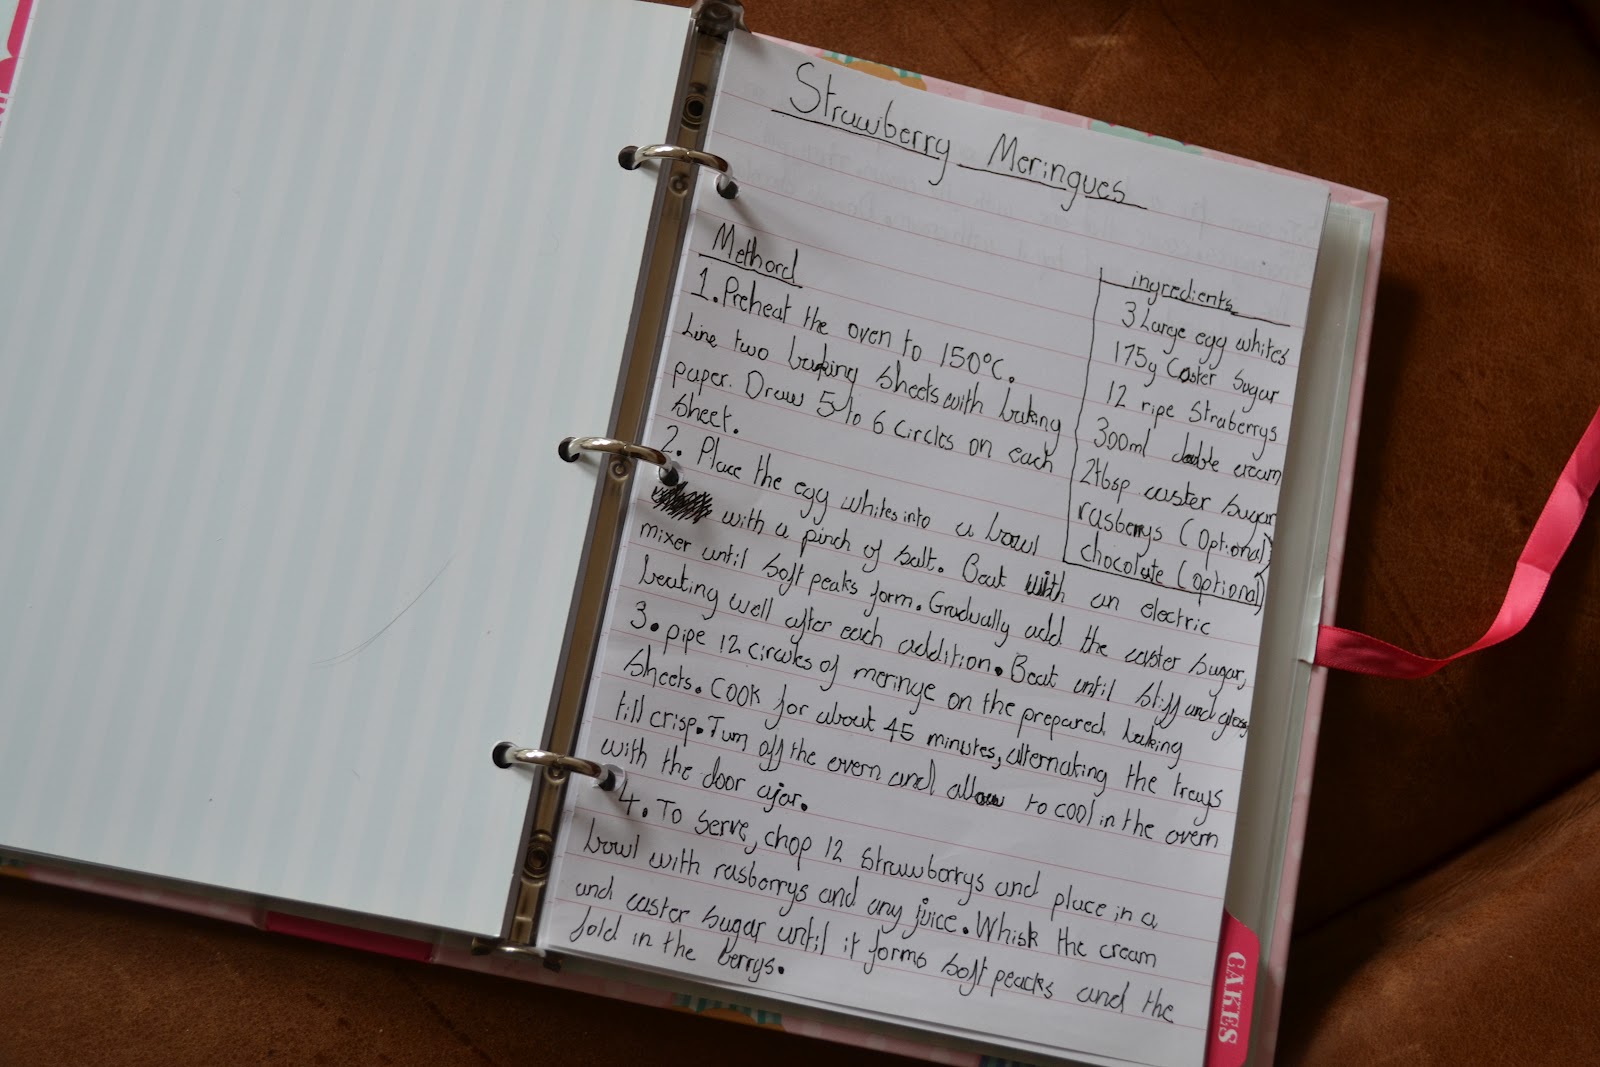 Strawberry Meringues
Methord
1. Preheat the oven to 150°C.
Line two baking sheets with baking
paper. Draw 5 to 6 circles on each
sheet.
2. Place the egg whites into a bowl
with a pinch of salt. Beat with an electric
mixer until soft peaks form. Gradually add the caster sugar,
beating well after each addition. Beat until stiff and glossy
3. pipe 12 circules of meringe on the prepared baking
sheets. Cook for about 45 minutes, alternating the treays
till crisp. Turn off the overn and allow to cool in the overn
with the door ajar.
4. To serve, chop 12 strawberrys and place in a
bowl with rasberrys and any juice. Whisk the cream
and caster sugar until it forms soft peacks and the
fold in the berrys.
ingredients
3 Large egg whites
175g Caster Sugar
12 ripe Straberrys
300ml double cream
2tbsp caster sugar
rasberrys (optional)
chocolate (optional)
CAKES